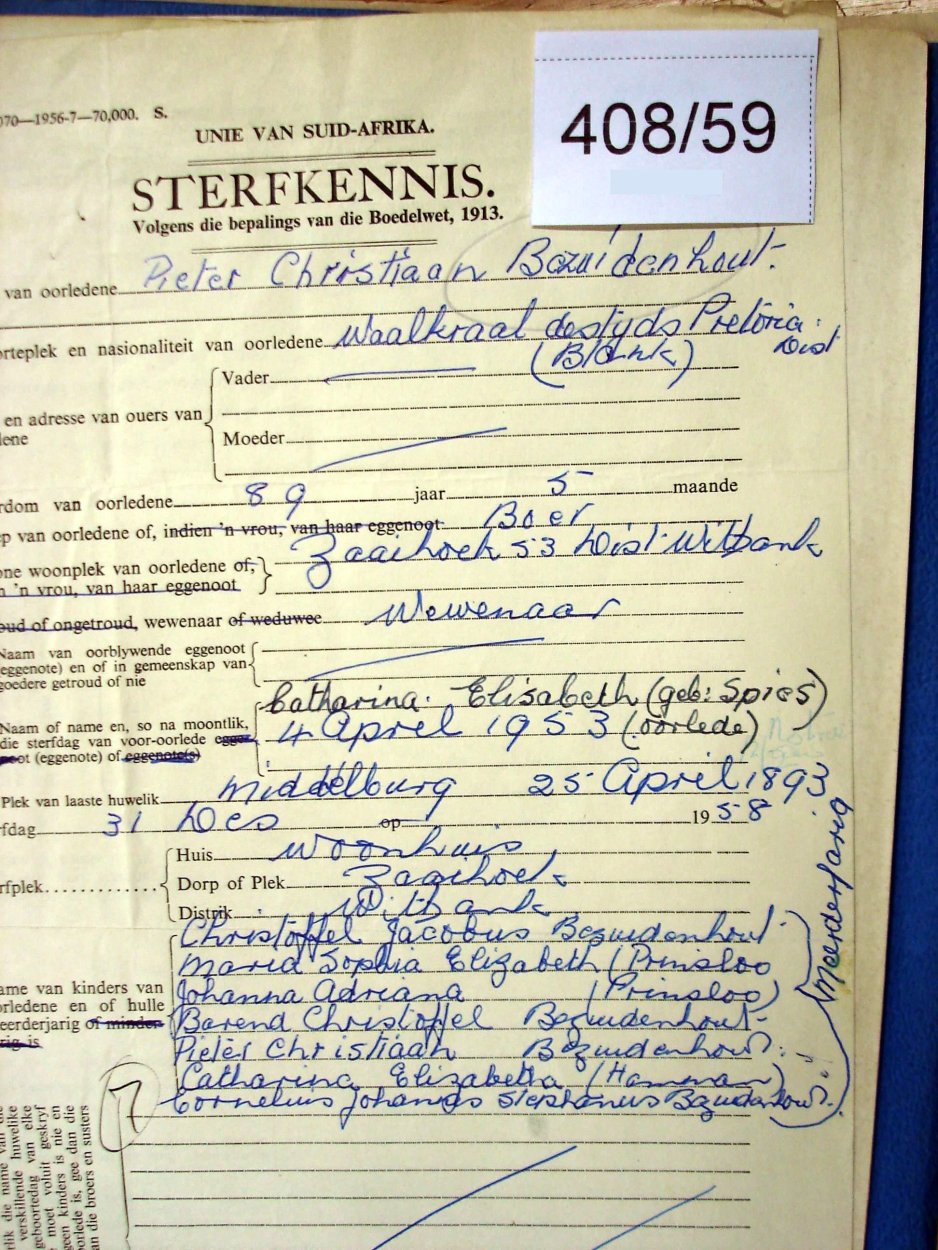 408/59
070—1956-7—70,000. S.
UNIE VAN SUID-AFRIKA.
STERFKENNIS.
Volgens die bepalings van die Boedelwet, 1913.
van oorledene Pieter Christiaan Bezuidenhout.
orteplek en nasionaliteit van oorledene Waalkraal destyds Pretoria. Dist
(Blank)
Vader
en adresse van ouers van
lene
Moeder
rdom van oorledene 89 jaar 5 maande
ep van oorledene of, indien 'n vrou, van haar eggenoot Boer
one woonplek van oorledene of, Zaaihoek 53 Dist Witbank
n 'n vrou, van haar eggenoot
oud of ongetroud, wewenaar of weduwee Wewenaar
Naam van oorblywende eggenoot
(eggenote) en of in gemeenskap van
goedere getroud of nie
Catharina. Elisabeth (geb: Spies)
Naam of name en, so na moontlik, 4 April 1953 (oorlede)
die sterfdag van voor-oorlede
oot (eggenote) of eggenote(s)
Plek van laaste huwelik Middelburg 25 April 1893
rfdag 31 Des op 19 58
Huis Woonhuis
rfplek Dorp of Plek Zaaihoek
Distrik Witbank
Christoffel Jacobus Bezuidenhout
Maria Sophia Elizabeth (Prinsloo
ame van kinders van Johanna Adriana (Prinsloo)
orledene en of hulle
eerderjarig of minder- Barend Christoffel Bezuidenhout
rig is Pieter Christiaan Bezuidenhout.
Catharina Elizabetha (Hamman)
Cornelius Johannes Stephanus Bezuidenhout.
Meerderjarig
7
rlik die name van die
verskillende huwelike
geboortedag van elke
moet voluit geskryf
geen kinders is nie en
oorlede is, gee dan die
an die broers en susters